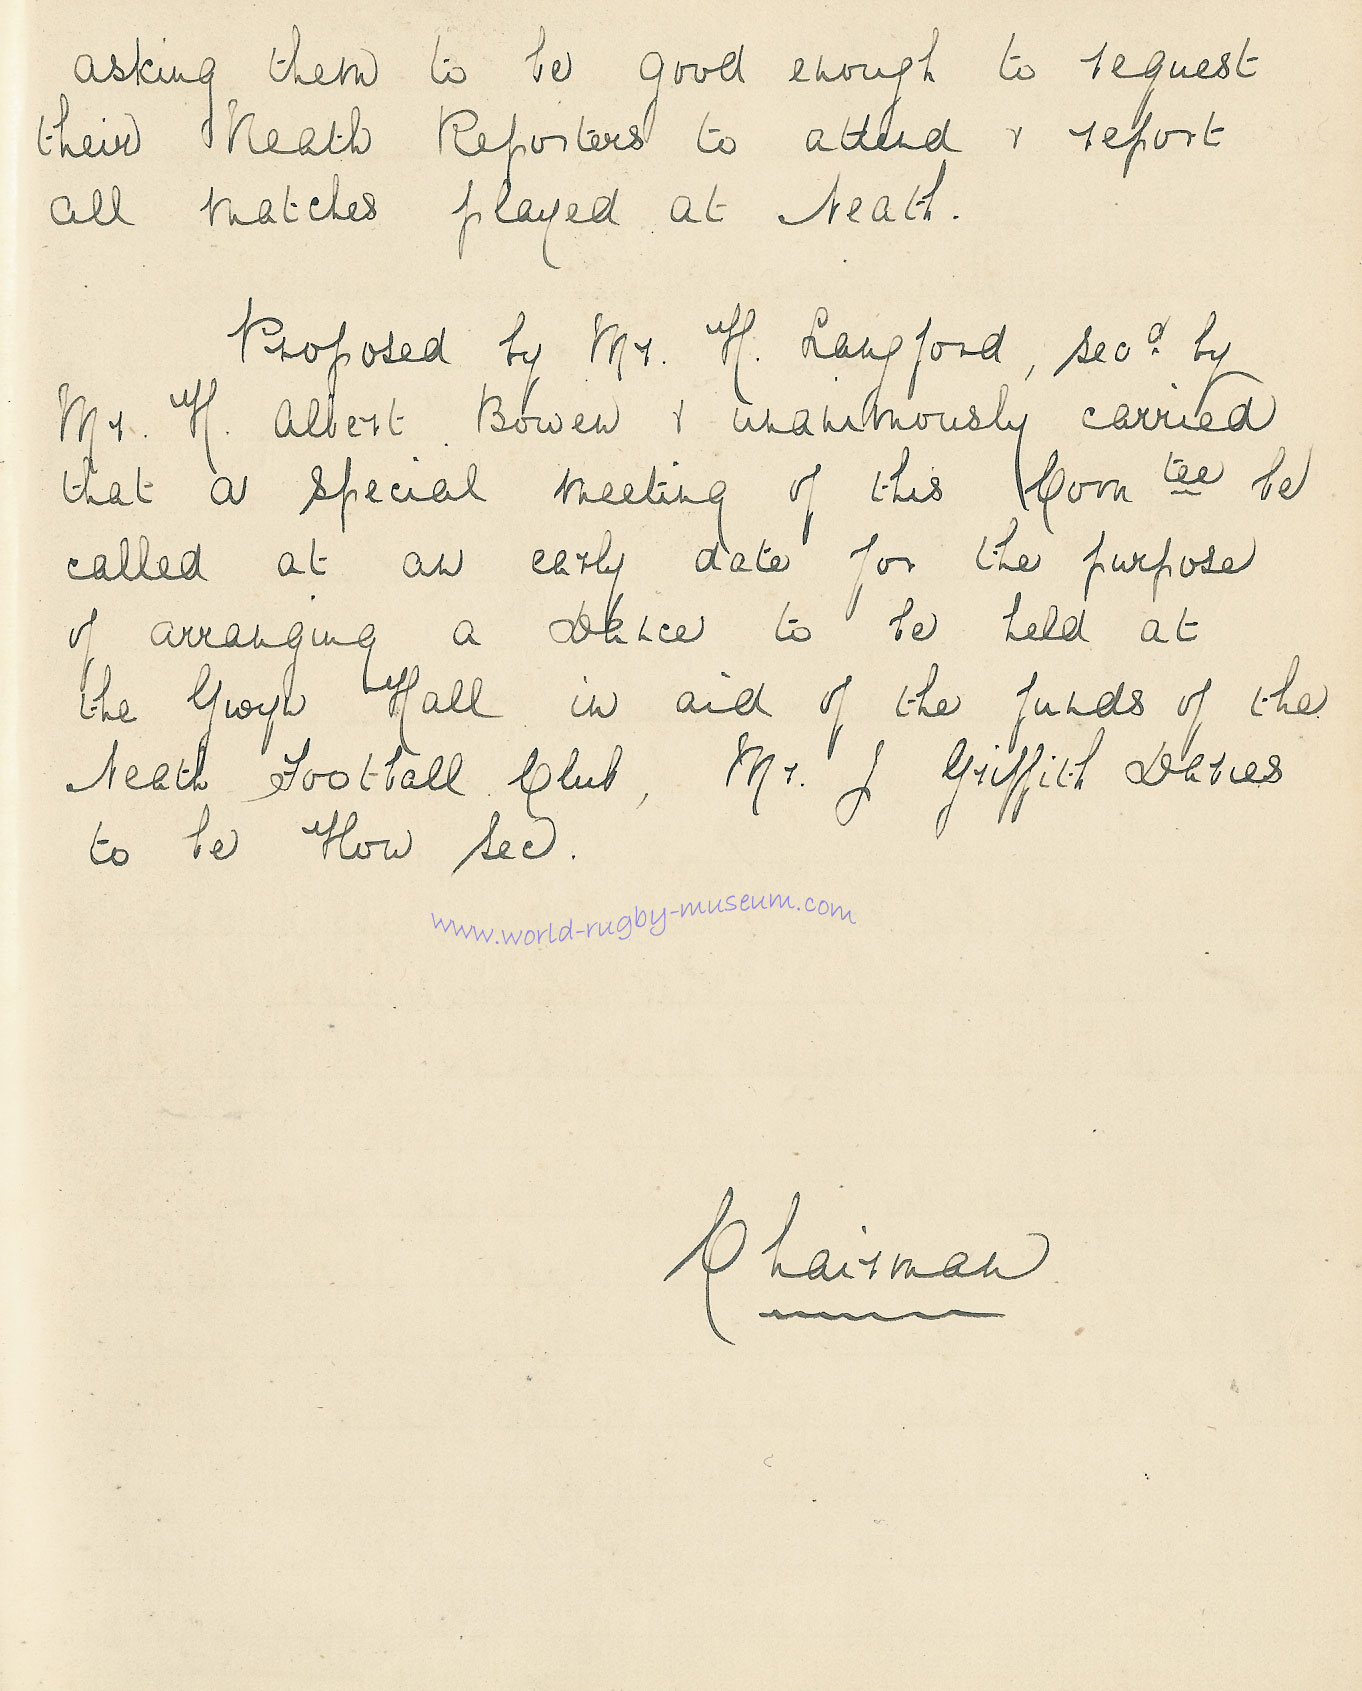 asking them to be good enough to request
their Neath Reporters to attend & report
all matches played at Neath.
Proposed by Mr. H. Langford, secd. by
Mr. H. Albert Bowen & unanimously carried
that a special meeting of this Comtee be
called at an early date for the purpose
of arranging a Dance to be held at
the Gwyn Hall in aid of the funds of the
Neath Football Club, Mr. J Griffith Davies
to be Hon Sec.
www.world-rugby-museum.com
Chairman